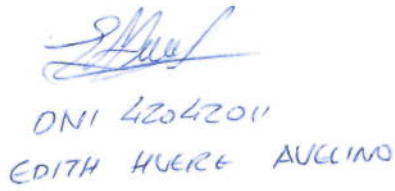 DNI 42042011
EDITH HUERE AVELINO